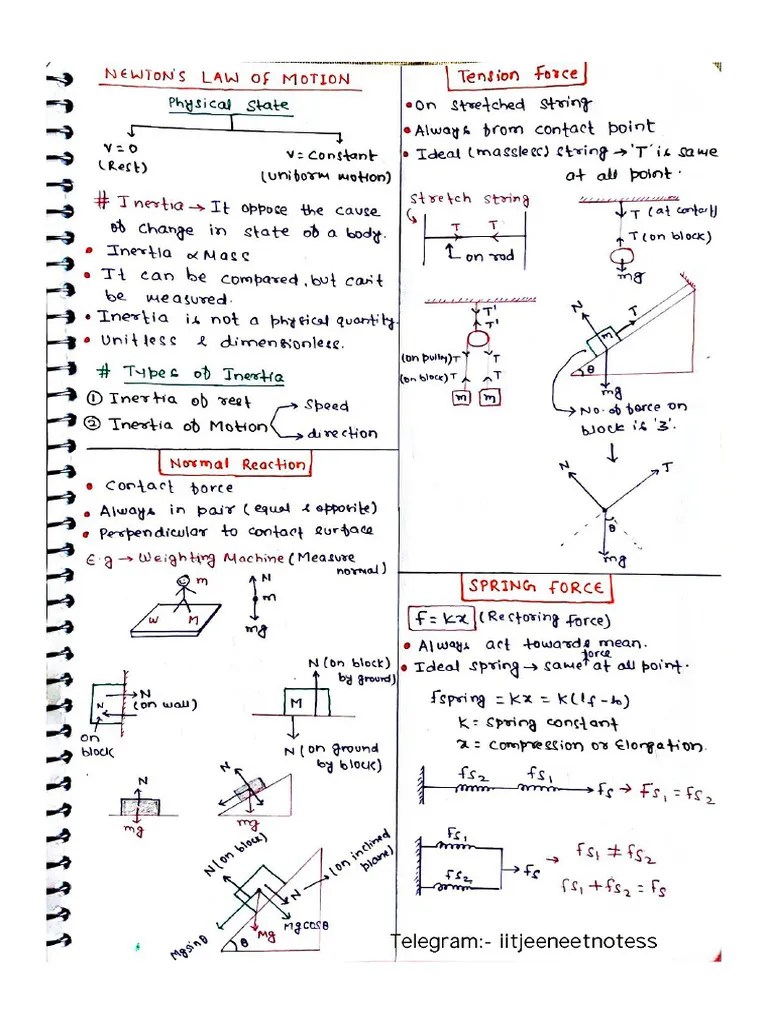 NEWTON'S LAW OF MOTION
Physical State
V = 0
(Rest)
V = Constant
(Uniform motion)
# Inertia → It oppose the cause
of change in state of a body.
• Inertia ∝ Mass
• It can be compared, but can't
be measured.
• Inertia is not a physical quantity.
• Unitless & dimensionless.
# Types of Inertia
① Inertia of rest
② Inertia of Motion
→ Speed
→ direction
Normal Reaction
• Contact force
• Always in pair (equal & opposite)
• Perpendicular to contact surface
E.g → Weighting Machine (Measure
normal)
m
W M
N
m
mg
N
(on wall)
N
on
block
N (on block)
by ground)
M
N (on ground
by block)
N
mg
N
mg
N (on block)
N (on inclined
plane)
Mg sinθ
θ
Mg
Mg cosθ
Tension Force
• On stretched string
• Always from contact point
• Ideal (massless) string → 'T' is same
at all point.
Stretch string
T T
on rod
T (at contact)
T (on block)
mg
T'
T'
(on pully) T T
(on block) T T
m m
N
T
m
θ
mg
No. of force on
block is '3'.
N
T
θ
mg
SPRING FORCE
F = Kx (Restoring force)
• Always act towards mean.
• Ideal spring → same force at all point.
Fspring = Kx = K(lf - lo)
K = Spring constant
x = Compression or Elongation.
FS2 FS1
FS → FS1 = FS2
FS1
FS2
FS →
FS1 ≠ FS2
FS1 + FS2 = FS
Telegram:- iitjeeneetnotess